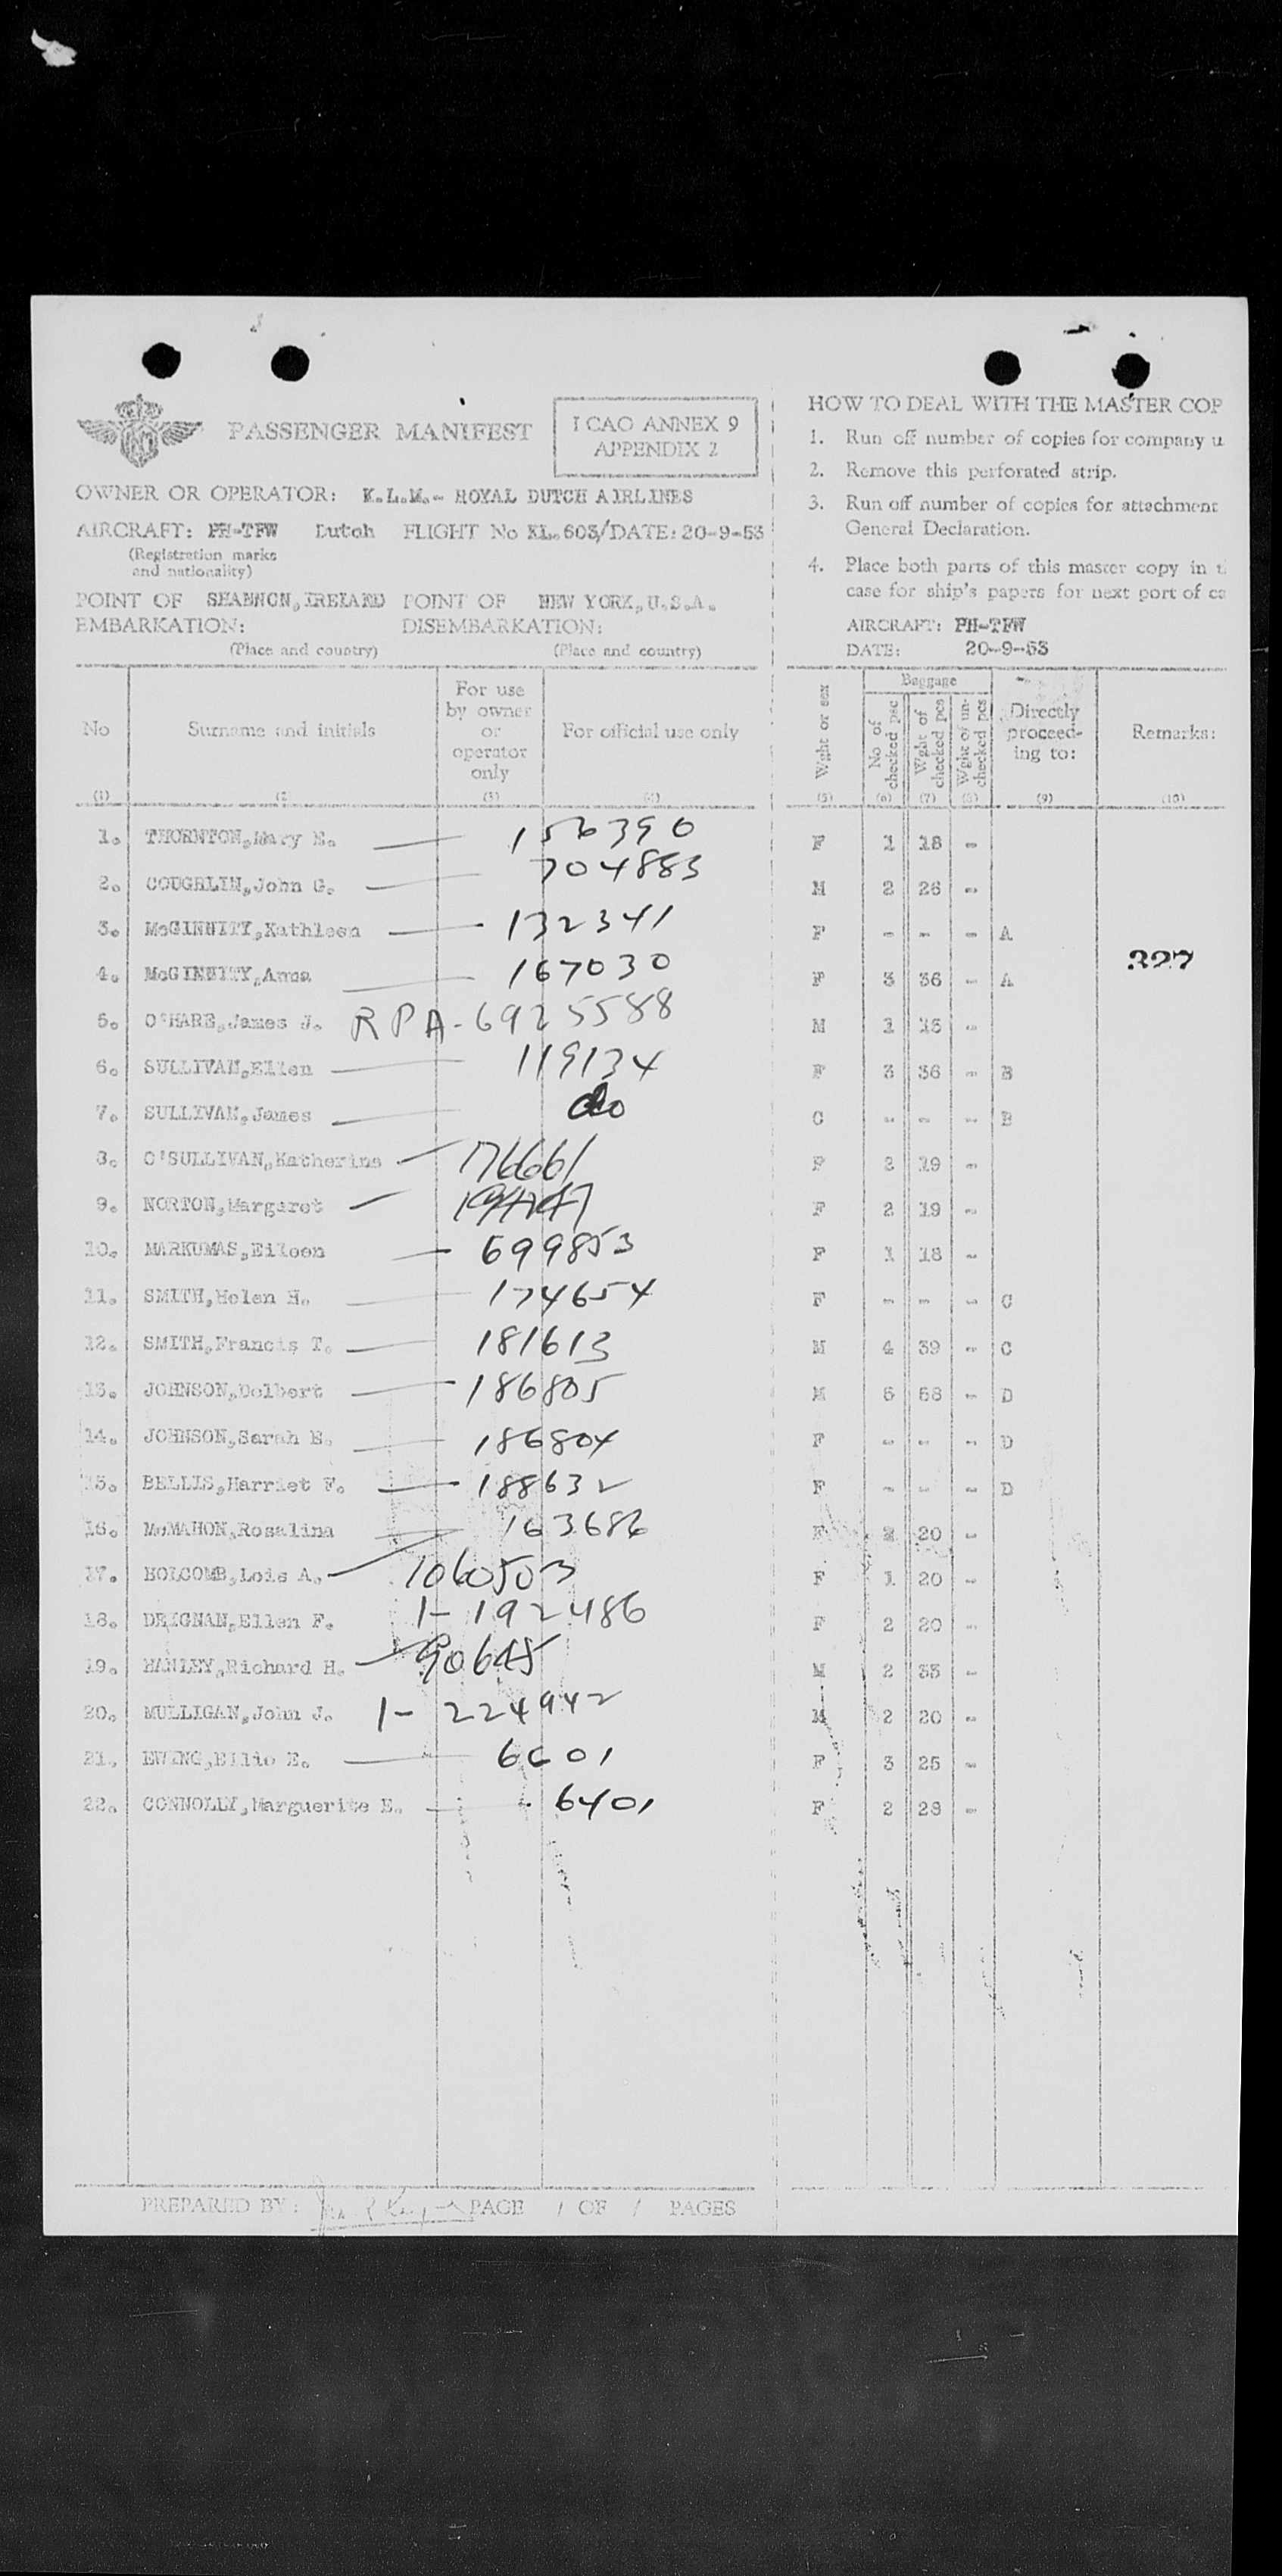 PASSENGER MANIFEST
ICAO ANNEX 9
APPENDIX 2
OWNER OR OPERATOR: K.L.M.- ROYAL DUTCH AIRLINES
AIRCRAFT: PH-TFW Dutch FLIGHT No KL.603/DATE: 20-9-53
(Registration marks
and nationality)
POINT OF SHANNON,IRELAND POINT OF NEW YORK,U.S.A.
EMBARKATION: DISEMBARKATION:
(Place and country) (Place and country)
HOW TO DEAL WITH THE MASTER COP
1. Run off number of copies for company u
2. Remove this perforated strip.
3. Run off number of copies for attachment
General Declaration.
4. Place both parts of this master copy in t
case for ship's papers for next port of ca
AIRCRAFT: PH-TFW
DATE: 20-9-53
No Surname and initials For use by owner or operator only For official use only Wght or sex Baggage No of checked pcs Wght of checked pcs Wght of un-checked pcs Directly proceed-ing to: Remarks:
(1) (2) (3) (4) (5) (6) (7) (8) (9) (10)
1. THORNTON,Mary E. 156390 F 1 18 -
2. COUGHLIN,John G. 704883 M 2 26 -
3. McGINNITY,Kathleen 132341 F - - - A
327
4. McGINNITY,Anna 167030 F 3 36 - A
5. O'HARE,James J. RPA-6925588 M 1 15 -
6. SULLIVAN,Ellen 119134 F 3 36 - B
7. SULLIVAN,James do C - - - B
8. O'SULLIVAN,Katherine 176661 F 2 19 -
9. NORTON,Margaret F 2 19 -
10. MARKUMAS,Eileen 699853 F 1 18 -
11. SMITH,Helen H. 174654 F - - - C
12. SMITH,Francis T. 181613 M 4 39 - C
13. JOHNSON,Delbert 186805 M 5 58 - D
14. JOHNSON,Sarah E. 186804 F - - - D
15. BELLIS,Harriet F. 188632 F - - - D
16. McMAHON,Rosalina 163686 F 2 20 -
17. HOLCOMB,Lois A. 1060503 F 1 20 -
18. DRIGNAN,Ellen F. 1-192486 F 2 20 -
19. HANLEY,Richard H. 90645 M 2 33 -
20. MULLIGAN,John J. 1-224942 M 2 20 -
21. EWING,Ellie E. 6601 F 3 25 -
22. CONNOLLY,Marguerite E. 6401 F 2 28 -
PREPARED BY: PAGE 1 OF 1 PAGES